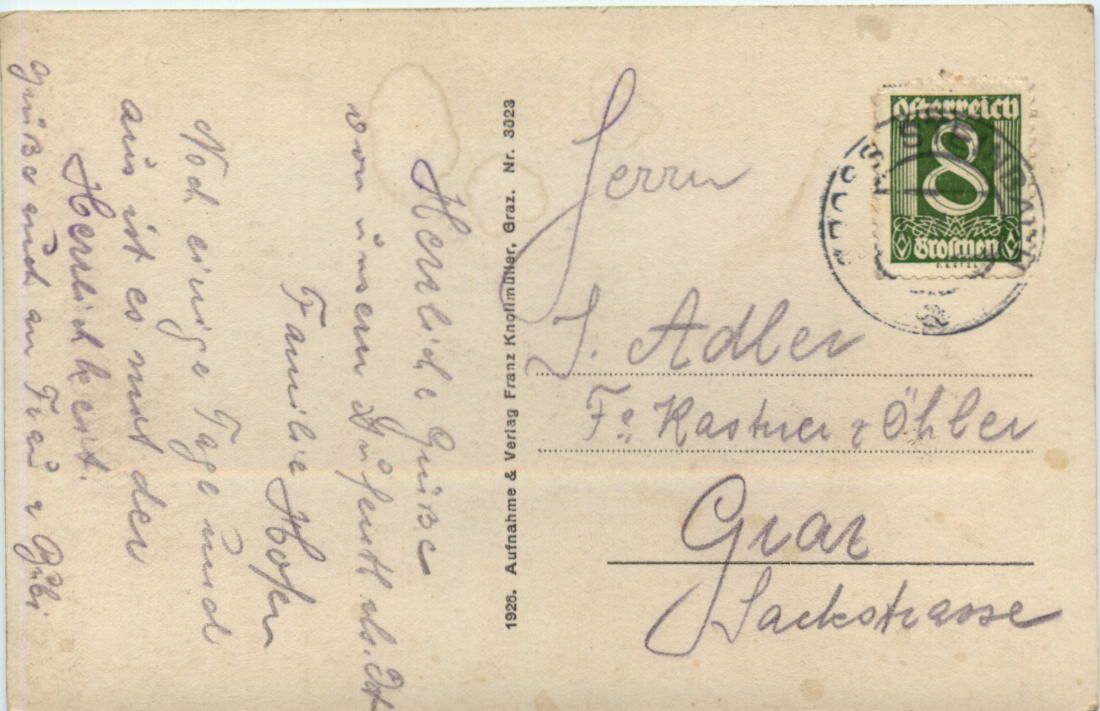 Herzliche Grüße
von unsern
Familie Hofer
Noch einige Tage und
aus ist es mit der
Herrlichkeit.
Grüße auch an Frau &
1926. Aufnahme & Verlag Franz Knollmüller, Graz. Nr. 3023
Österreich
8
Groschen
Herrn
J. Adler
Fa. Kastner & Öhler
Graz
Sackstrasse